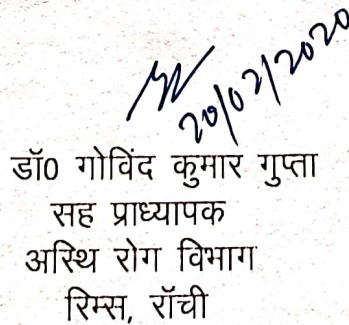 20/02/2020
डॉ0 गोविंद कुमार गुप्ता
सह प्राध्यापक
अस्थि रोग विभाग
रिम्स, रॉची